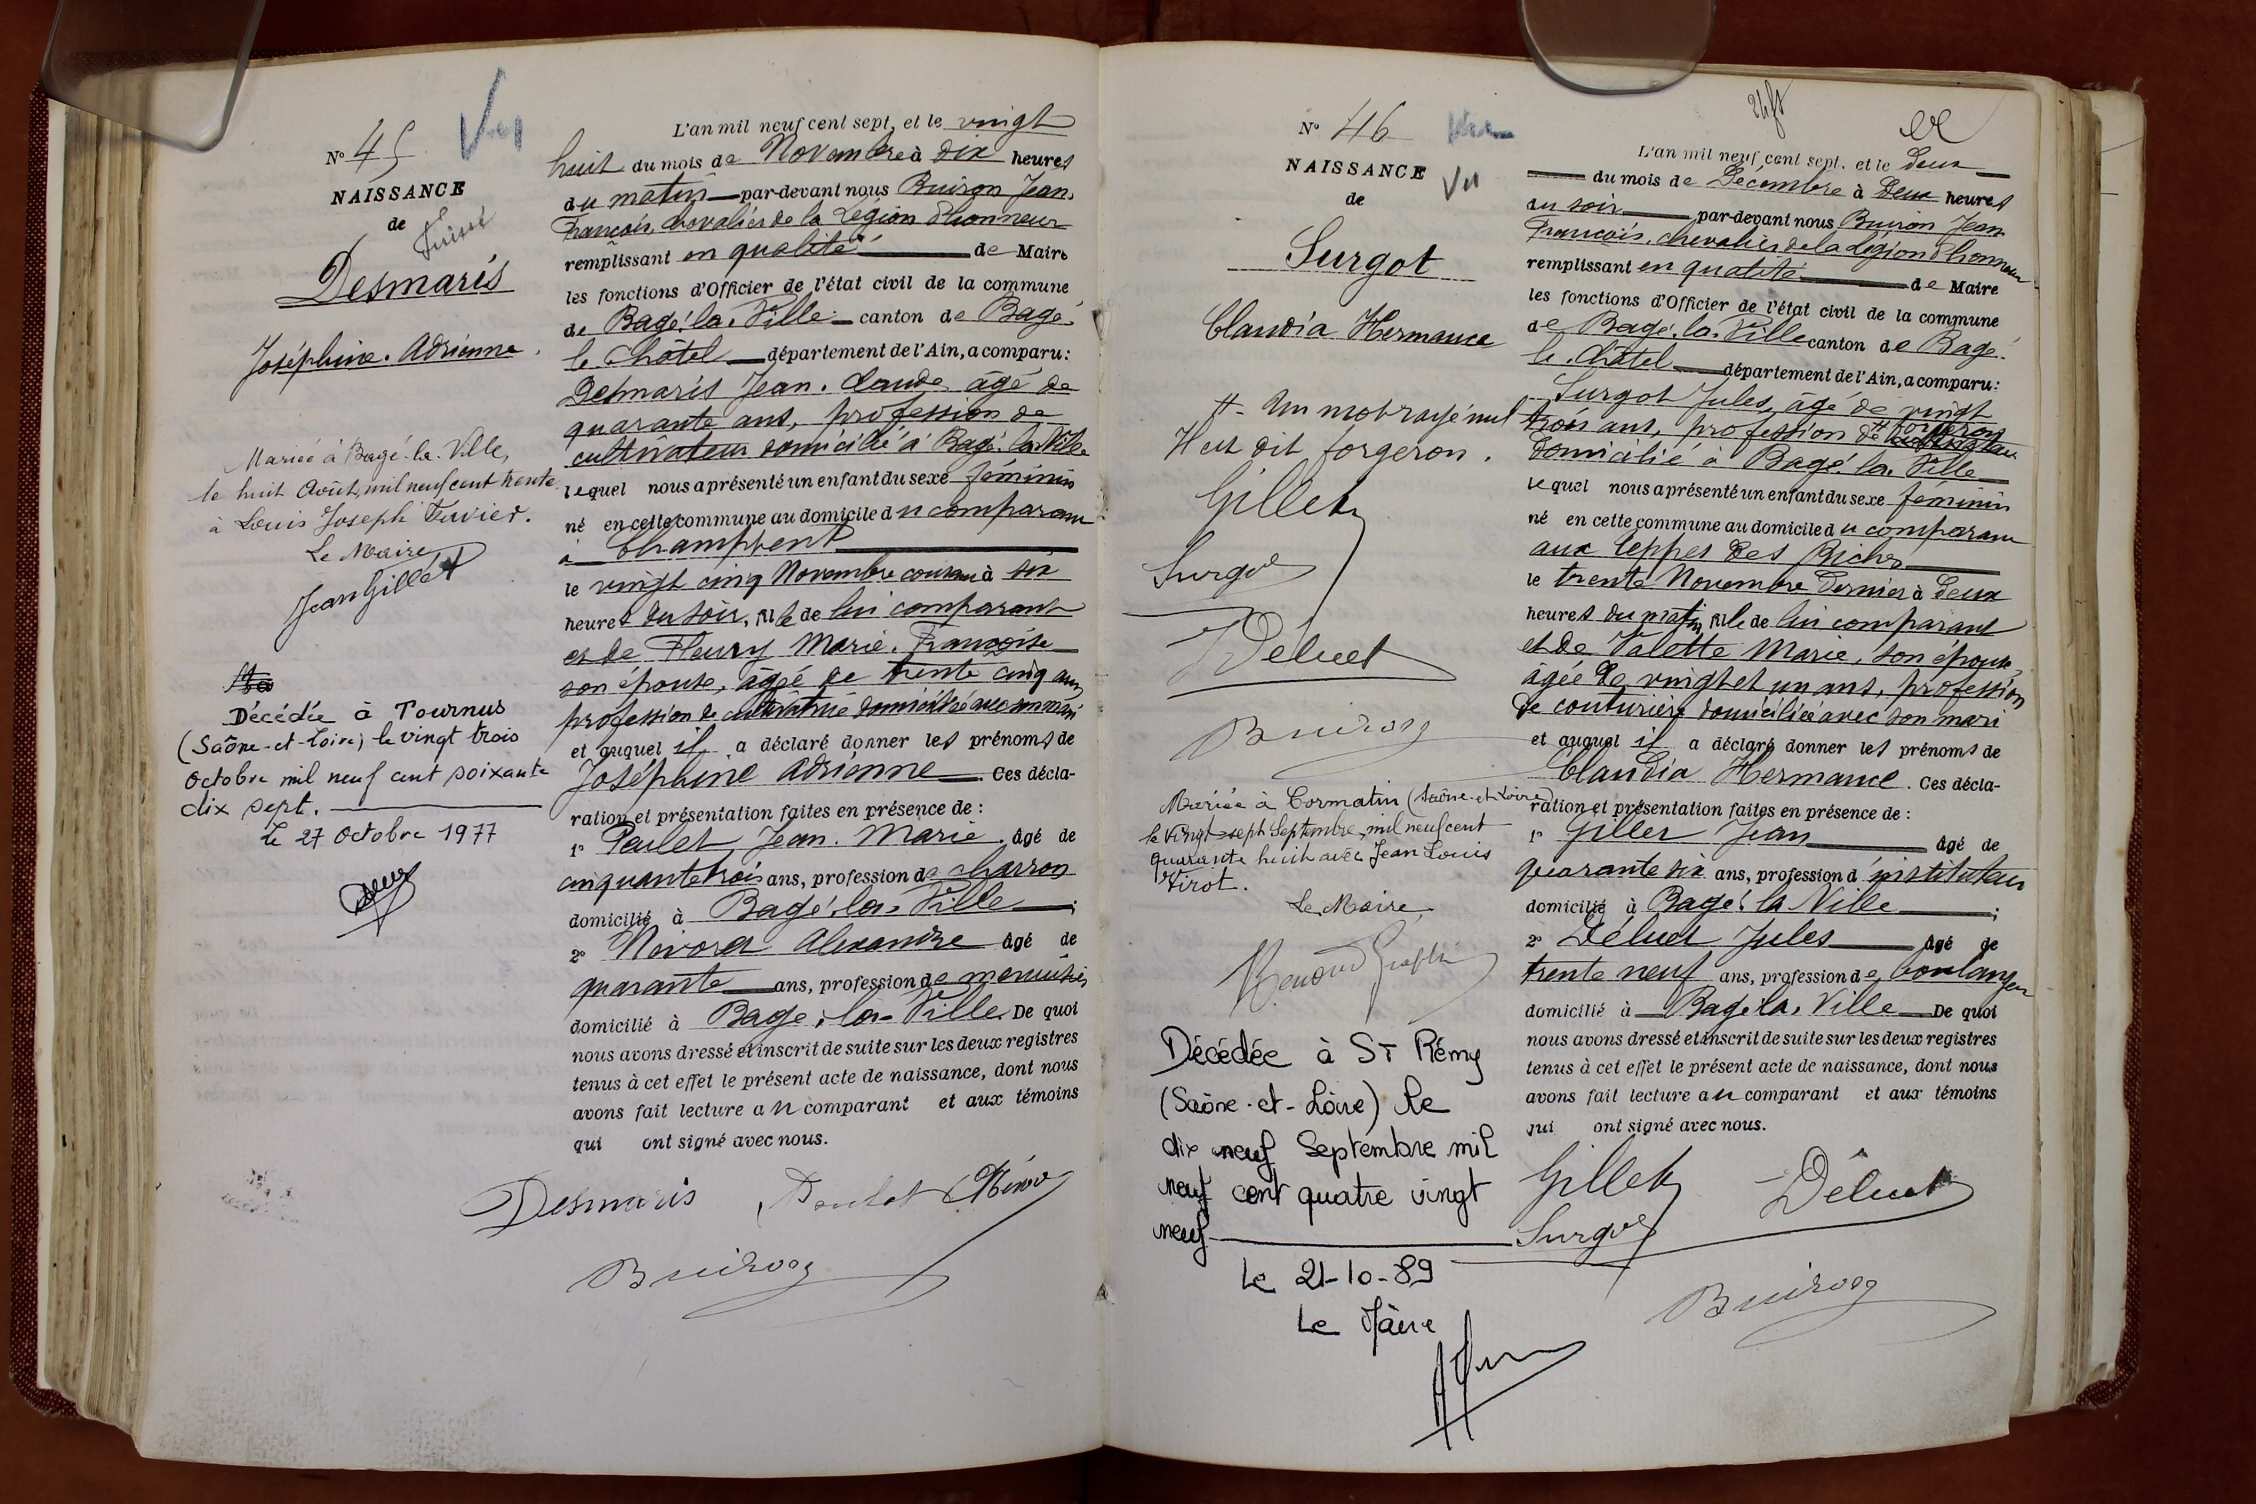 N° 45
Vu
NAISSANCE
de
Desmaris
Joséphine. Adrienne
Mariée à Bagé-la-Ville,
le huit Août, mil neuf cent trente
à Louis Joseph
Le Maire
Jean Gillet
Décédée à Tournus
(Saône-et-Loire) le vingt trois
octobre mil neuf cent soixante
dix sept.
Le 27 octobre 1977
L'an mil neuf cent sept, et le vingt
huit du mois de Novembre à dix heures
du matin par-devant nous Buiron Jean
François, chevalier de la Légion d'honneur
remplissant en qualité de Maire
les fonctions d'Officier de l'état civil de la commune
de Bagé. la. Ville canton de Bagé.
le Châtel département de l'Ain, a comparu:
Desmaris Jean. Claude âgé de
quarante ans, profession de
cultivateur domicilié à Bagé la Ville
lequel nous a présenté un enfant du sexe féminin
né en cette commune au domicile du comparant
à
le vingt cinq Novembre courant à six
heures du soir, fille de lui comparant
et de Fleury Marie. Françoise
son épouse, âgée de trente cinq ans
profession de cultivatrice domiciliée avec son mari
et auquel il a déclaré donner les prénoms de
Joséphine Adrienne Ces décla-
ration et présentation faites en présence de :
1° Paulet Jean. Marie, âgé de
cinquante trois ans, profession de charron
domicilié à Bagé. la. Ville ;
2° Nivord Alexandre âgé de
quarante ans, profession de menuisier
domicilié à Bagé. la. Ville De quoi
nous avons dressé et inscrit de suite sur les deux registres
tenus à cet effet le présent acte de naissance, dont nous
avons fait lecture au comparant et aux témoins
qui ont signé avec nous.
Desmaris
Buiron
N° 46
Vu
NAISSANCE
Vu
de
Surgot
Claudia Hermance
Un mot rayé nul
Il est dit forgeron.
Gillet
Surgot
Déluet
Buiron
Mariée à Cormatin (Saône-et-Loire)
le vingt-sept Septembre mil neuf cent
quarante huit avec Jean Louis
Virot.
Le Maire
Décédée à St Rémy
(Saône-et-Loire) le
dix neuf Septembre mil
neuf cent quatre vingt
neuf
Le 21-10-89
Le Maire
L'an mil neuf cent sept. et le Deux
du mois de Décembre à Deux heures
du soir par-devant nous Buiron Jean
François. chevalier de la Légion d'honneur
remplissant en qualité de Maire
les fonctions d'Officier de l'état civil de la commune
de Bagé. la. Ville canton de Bagé.
le. Châtel département de l'Ain, a comparu:
Surgot Jules âgé de vingt
trois ans, profession de forgeron
domicilié à Bagé la. Ville
lequel nous a présenté un enfant du sexe féminin
né en cette commune au domicile du comparant
aux Teppes des
le trente Novembre Dernier à Deux
heures du matin, fille de lui comparant
et de Valette Marie, son épouse,
âgée de vingt et un ans, profession
de couturière domiciliée avec son mari
et auquel il a déclaré donner les prénoms de
Claudia Hermance. Ces décla-
ration et présentation faites en présence de :
1° Gillet Jean âgé de
quarante six ans, profession d'instituteur
domicilié à Bagé. la Ville ;
2° Déluet Jules âgé de
trente neuf ans, profession de boulanger
domicilié à Bagé. la. Ville De quoi
nous avons dressé et inscrit de suite sur les deux registres
tenus à cet effet le présent acte de naissance, dont nous
avons fait lecture au comparant et aux témoins
qui ont signé avec nous.
Gillet
Déluet
Surgot
Buiron